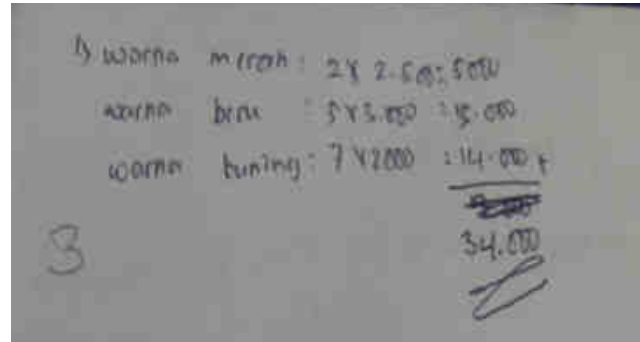 1) warna merah : 2 x 2.500 : 5000
warna biru : 5 x 3.000 : 15.000
warna kuning : 7 x 2000 : 14.000 +
34.000
3